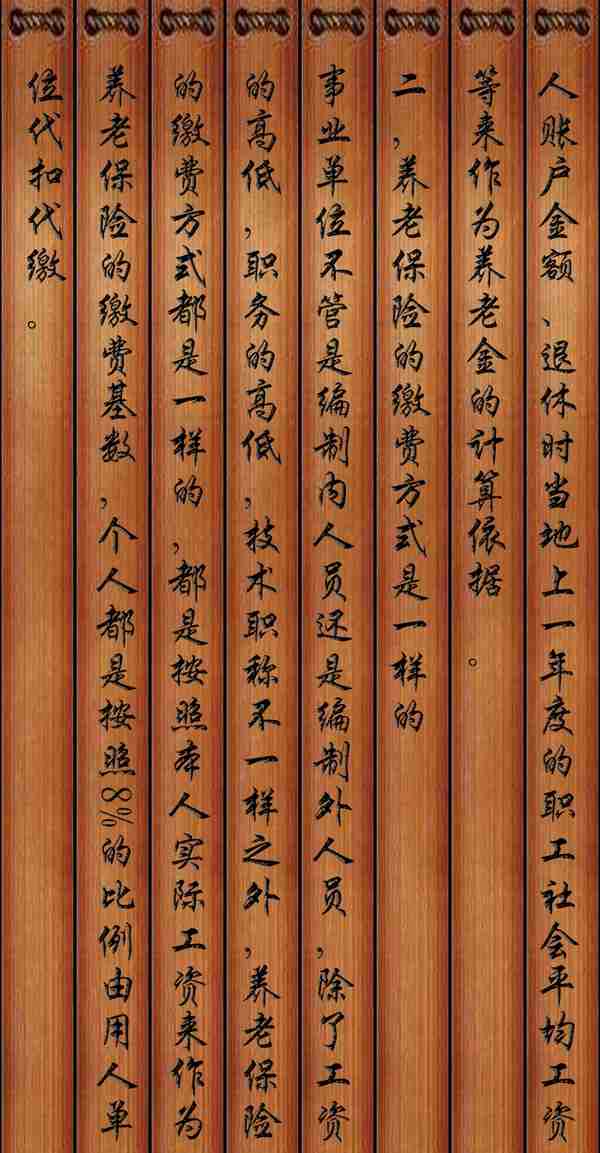 人账户金额、退休时当地上一年度的职工社会平均工资
等来作为养老金的计算依据。
二，养老保险的缴费方式是一样的
事业单位不管是编制内人员还是编制外人员，除了工资
的高低，职务的高低，技术职称不一样之外，养老保险
的缴费方式都是一样的，都是按照本人实际工资来作为
养老保险的缴费基数，个人都是按照8%的比例由用人单
位代扣代缴。